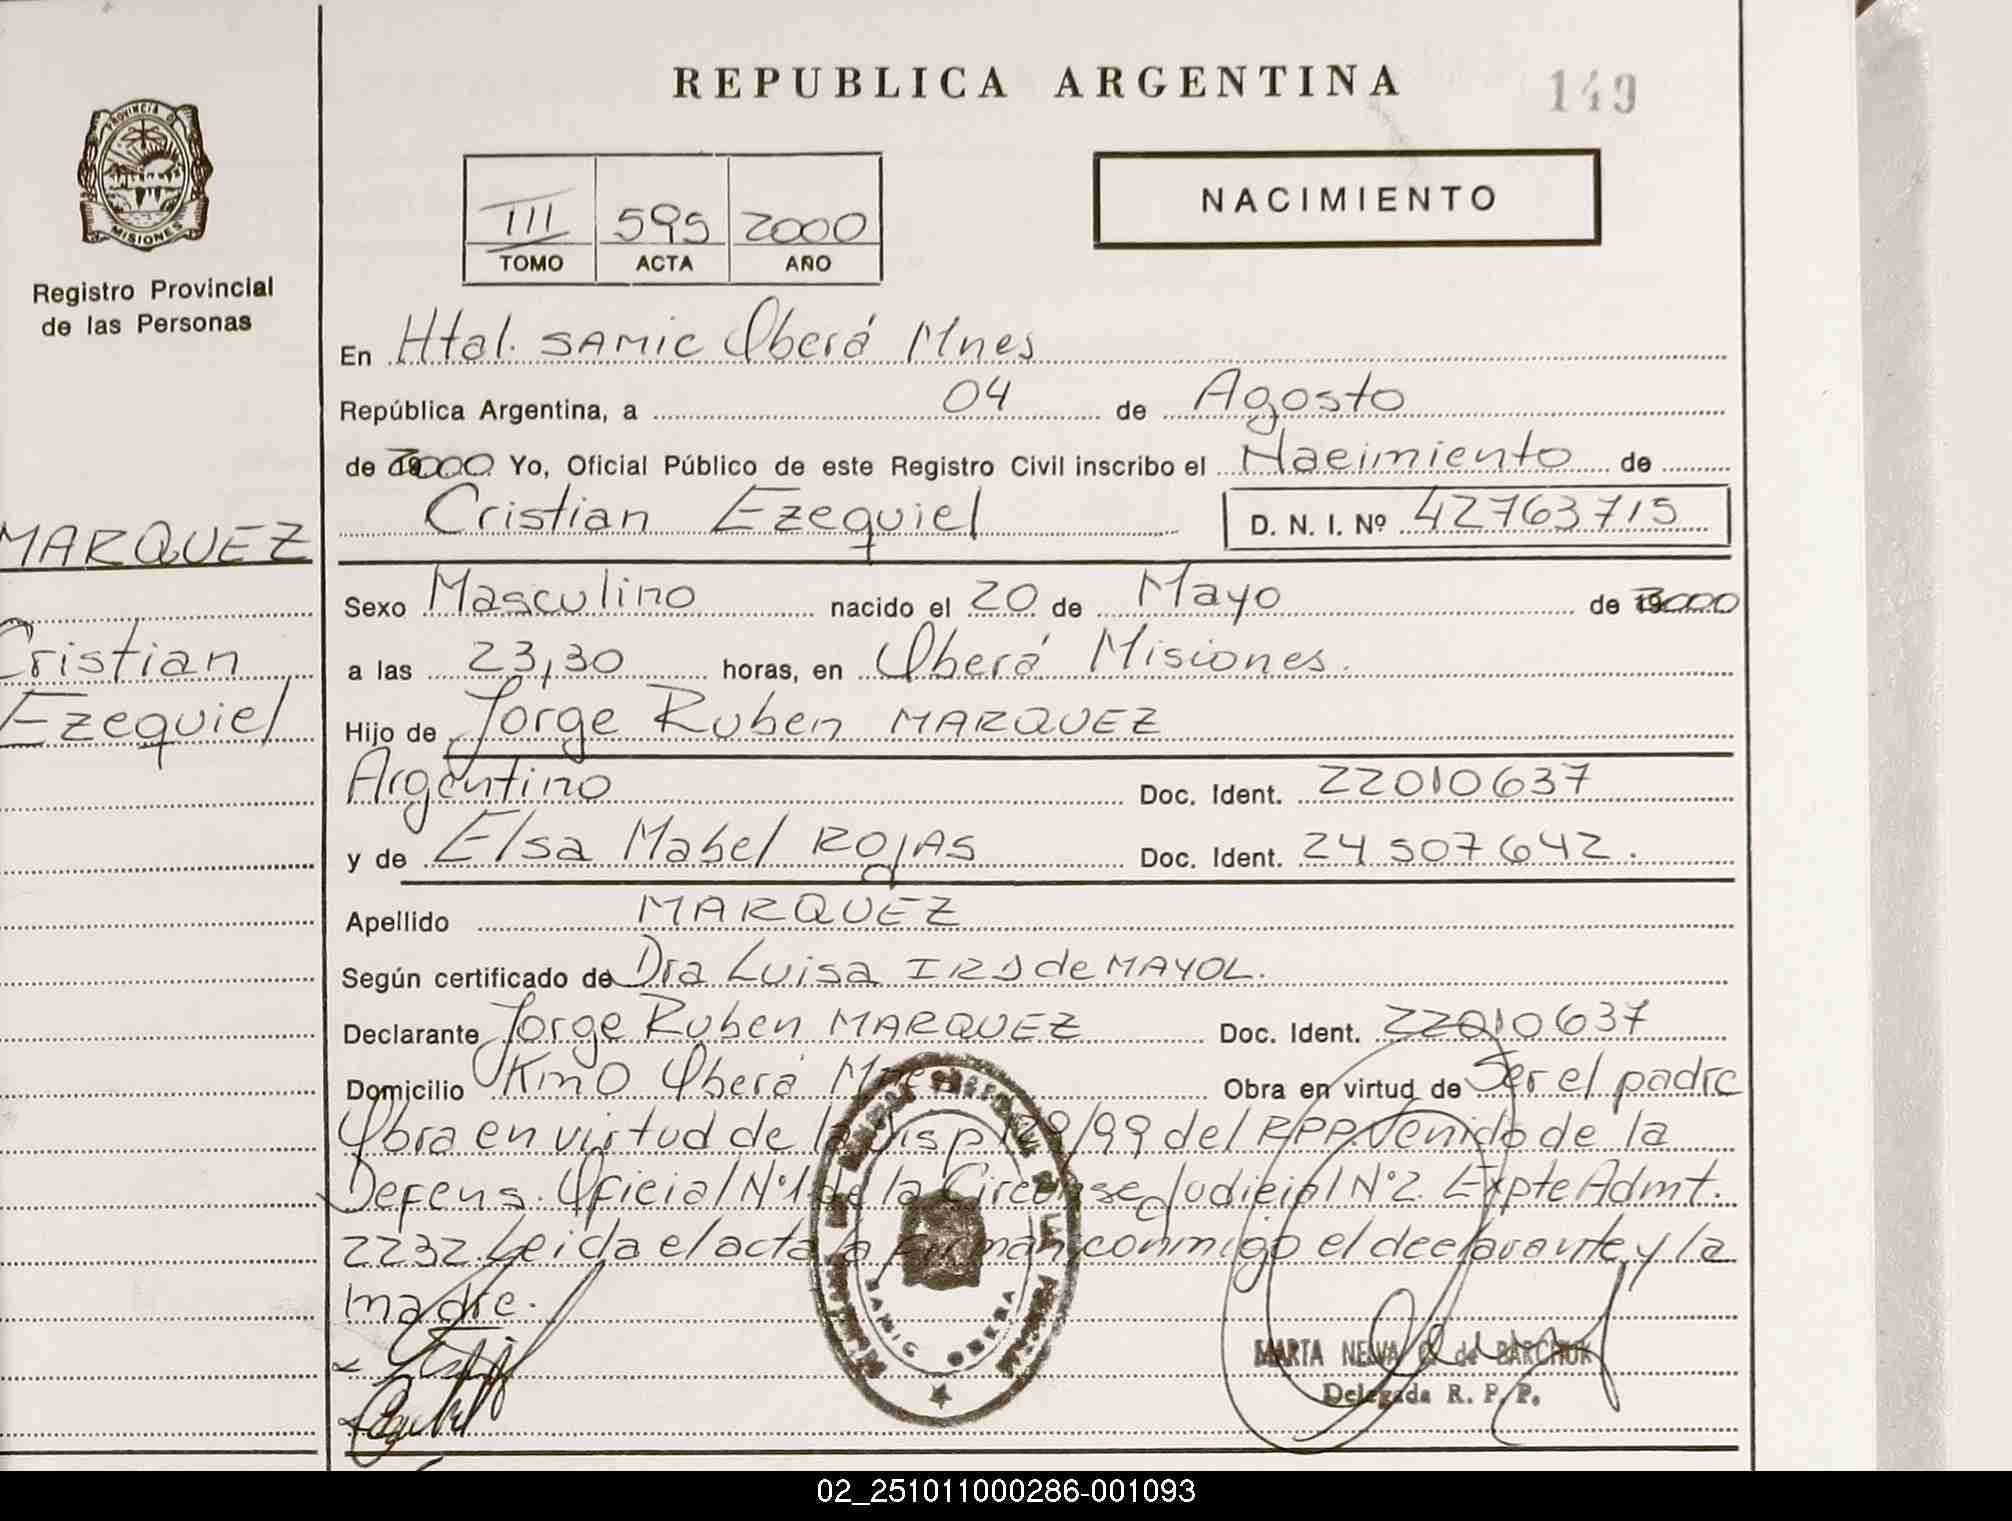 REPUBLICA ARGENTINA
149
PROVINCIA DE
MISIONES
Registro Provincial
de las Personas
III 595 2000
TOMO ACTA AÑO
NACIMIENTO
En Htal. SAMIC Oberá Mnes
República Argentina, a 04 de Agosto
de 2000 Yo, Oficial Público de este Registro Civil inscribo el Nacimiento de
Cristian Ezequiel D. N. I. Nº 42763715
MARQUEZ
Cristian
Ezequiel
Sexo Masculino nacido el 20 de Mayo de 2000
a las 23,30 horas, en Oberá Misiones.
Hijo de Jorge Ruben MARQUEZ
Argentino Doc. Ident. 22010637
y de Elsa Mabel ROJAS Doc. Ident. 24507642.
Apellido MARQUEZ
Según certificado de Dra Luisa de MAYOL.
Declarante Jorge Ruben MARQUEZ Doc. Ident. 22010637
Domicilio Km 0 Oberá Obra en virtud de Ser el padre
Obra en virtud de la Disp /99 del RPP. Venido de la
Defens. Oficial Nº1 de la Judicial Nº2. Expte Admt.
2232. Leida el acta la firman conmigo el declarante y la
madre.
SAMIC OBERA
MARTA de BARCHUK
Delegada R. P. P.
02_251011000286-001093